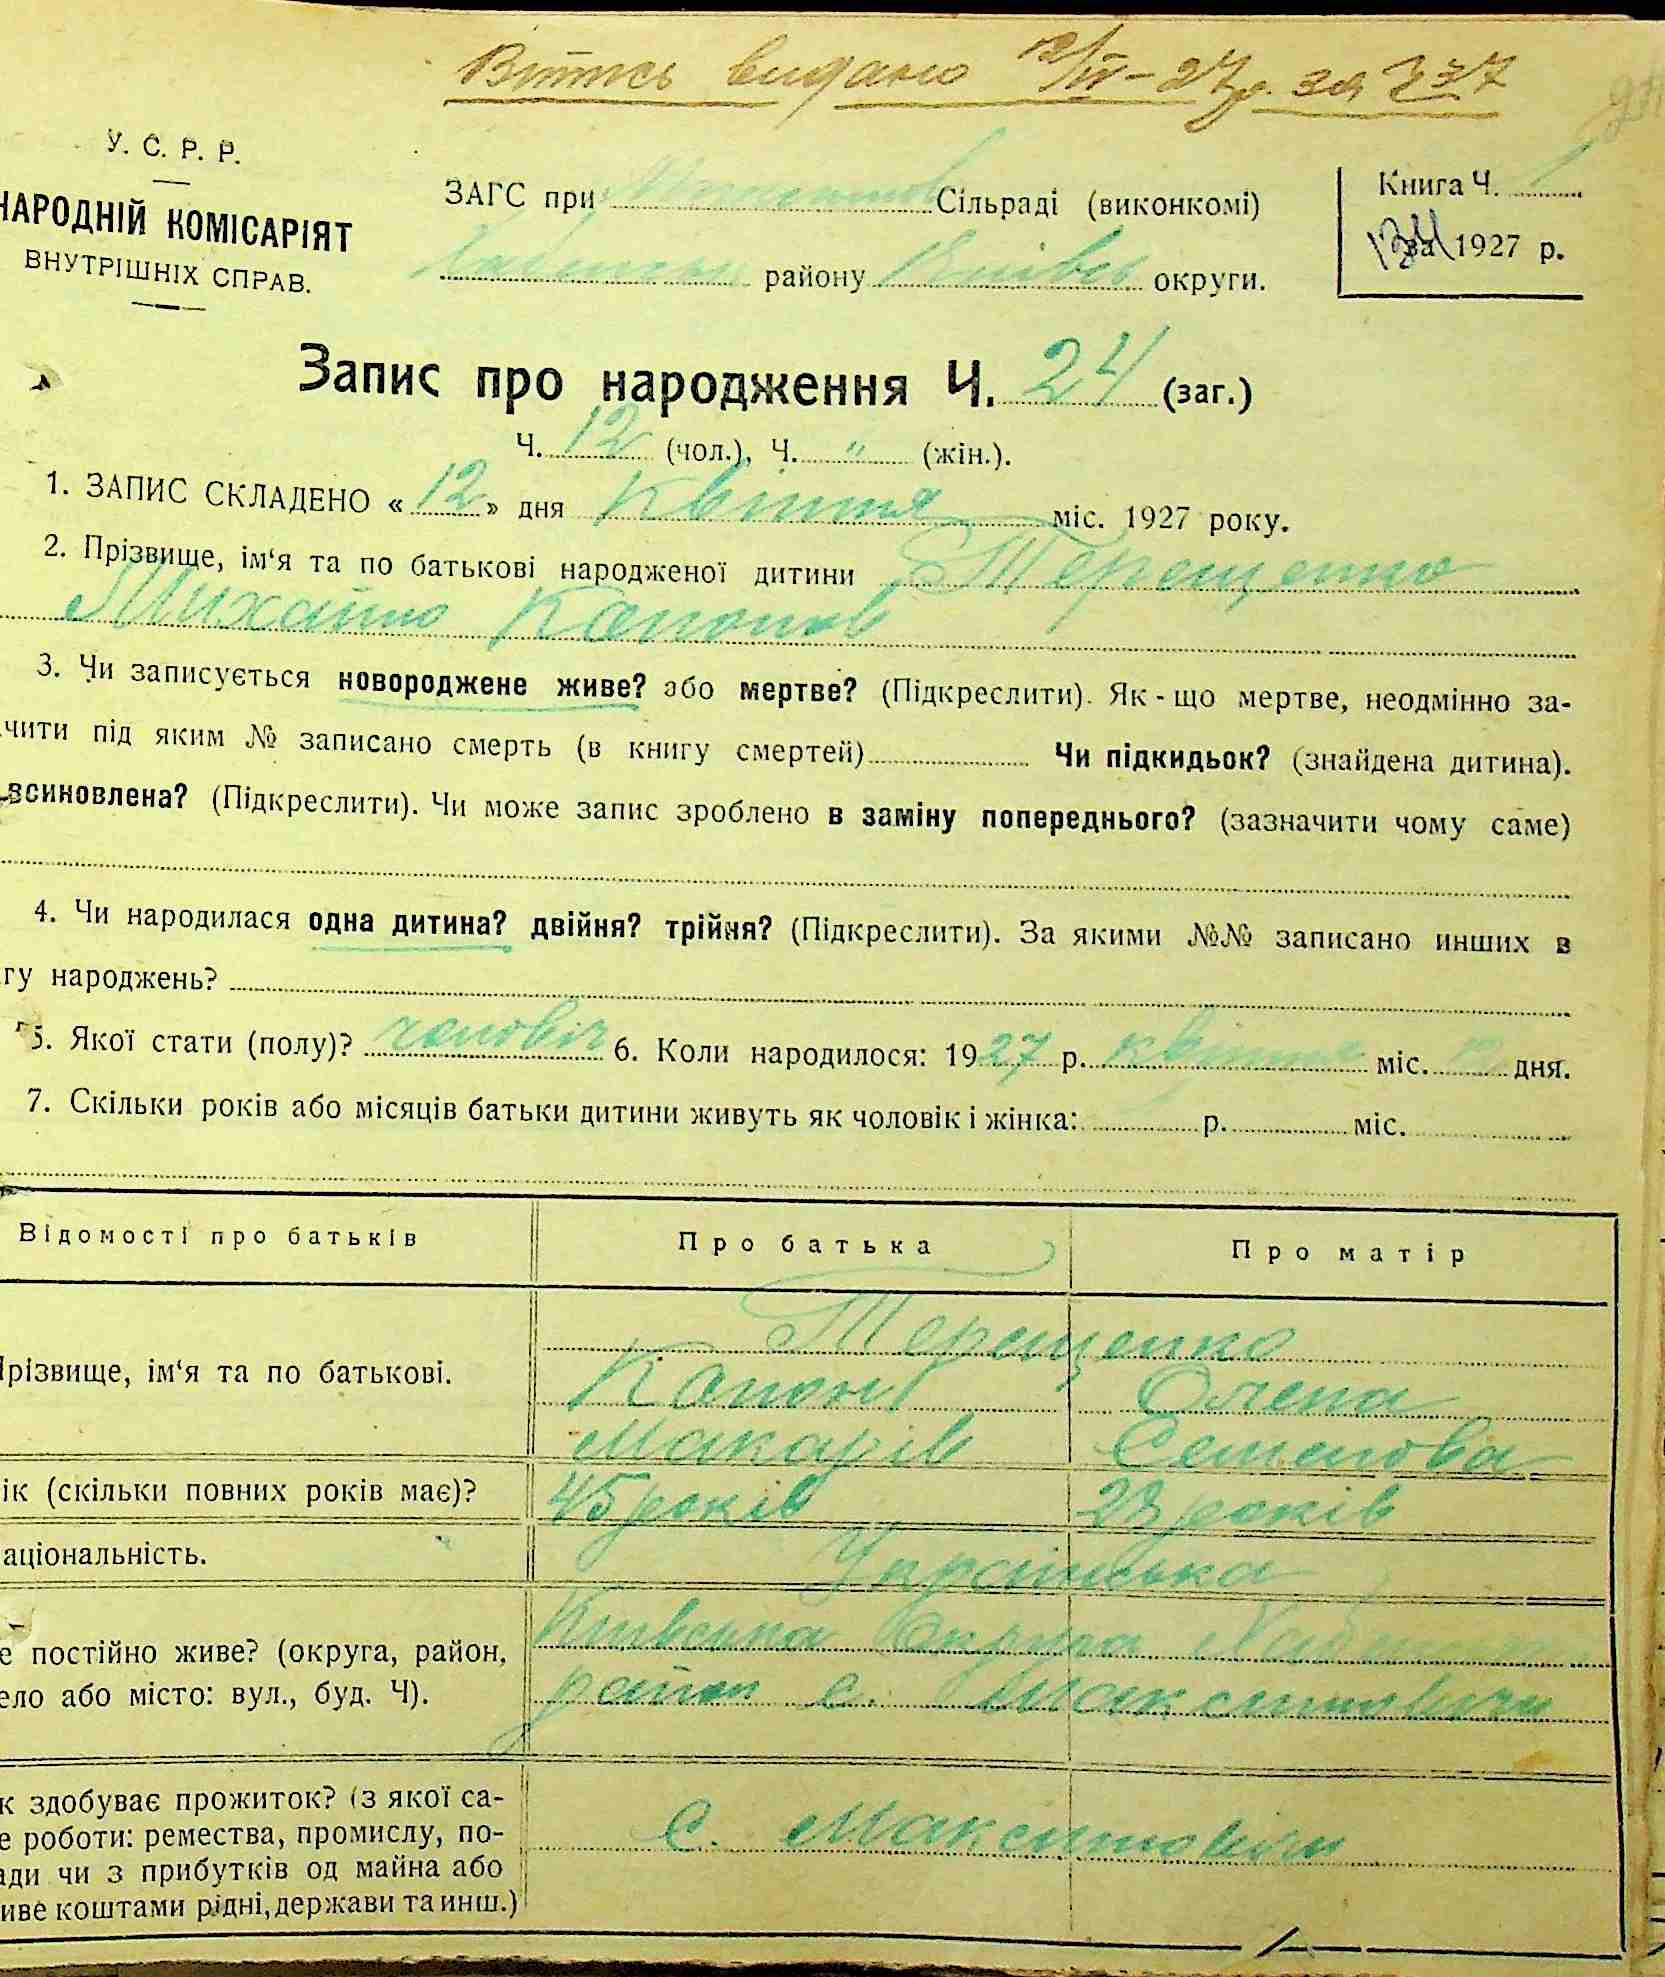 Витяг видано 12/IV-27р. за 337
У. С. Р. Р.
НАРОДНІЙ КОМІСАРІЯТ
ВНУТРІШНІХ СПРАВ.
ЗАГС при Сільраді (виконкомі)
району Київськ округи.
Книга Ч. 1
за 1927 р.
Запис про народження Ч. 24 (заг.)
Ч. 12 (чол.), Ч. " (жін.).
1. ЗАПИС СКЛАДЕНО « 12 » дня Квітня міс. 1927 року.
2. Прізвище, ім‘я та по батькові народженої дитини Терещенко
Михайло Капонів
3. Чи записується новороджене живе? або мертве? (Підкреслити). Як-що мертве, неодмінно за-
чити під яким № записано смерть (в книгу смертей) Чи підкидьок? (знайдена дитина).
всиновлена? (Підкреслити). Чи може запис зроблено в заміну попереднього? (зазначити чому саме)
4. Чи народилася одна дитина? двійня? трійня? (Підкреслити). За якими №№ записано инших в
гу народжень?
5. Якої стати (полу)? чоловіч 6. Коли народилося: 1927 р. квітня міс. дня.
7. Скільки років або місяців батьки дитини живуть як чоловік і жінка: р. міс.
Відомості про батьків Про батька Про матір
Терещенко
Прізвище, ім‘я та по батькові. Капон Олена
Макарів Семенова
ік (скільки повних років має)? 45 років 28 років
аціональність. Українська
Київська Округа
е постійно живе? (округа, район,
ело або місто: вул., буд. Ч). район с. Максимовичи
к здобуває прожиток? (з якої са-
е роботи: ремества, промислу, по- С. Максимовичи
ади чи з прибутків од майна або
иве коштами рідні, держави та инш.)